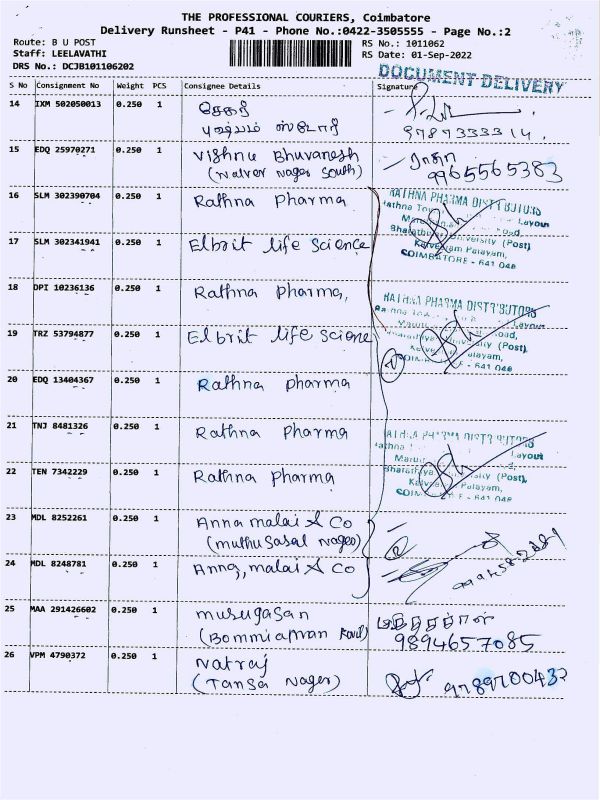 THE PROFESSIONAL COURIERS, Coimbatore
Delivery Runsheet - P41 - Phone No.:0422-3505555 - Page No.:2
Route: B U POST RS No.: 1011062
Staff: LEELAVATHI RS Date: 01-Sep-2022
DRS No.: DCJB101106202
DOCUMENT DELIVERY
S No Consignment No Weight PCS Consignee Details Signature
14 IXM 502050013 0.250 1 சேகர்
புஷ்பம் ஸ்டோர் 9787333314.
15 EDQ 25970271 0.250 1 Vishnu Bhuvanesh ராதா
(Valver Nager South) 9965565383
16 SLM 302390704 0.250 1 Rathna Pharma RATHNA PHARMA DISTRIBUTORS
Layout
17 SLM 302341941 0.250 1 Elbrit life Science University (Post)
Palayam,
COIMBATORE - 641 046
18 DPI 10236136 0.250 1 Rathna Pharma, RATHNA PHARMA DISTRIBUTORS
Layout
19 TRZ 53794877 0.250 1 Elbrit life Science (Post),
641 046
20 EDQ 13404367 0.250 1 Rathna Pharma
21 TNJ 8481326 0.250 1 Rathna Pharma
Layout
22 TEN 7342229 0.250 1 Rathna Pharma (Post),
Palayam,
641 046
23 MDL 8252261 0.250 1 Anna malai & Co
24 MDL 8248781 0.250 1 Anna, malai & Co
25 MAA 291426602 0.250 1 Murugasan
(Bommiaman Kovil) 9894657085
26 VPM 4790372 0.250 1 Natraj
(Tansa Nager) 9789700432